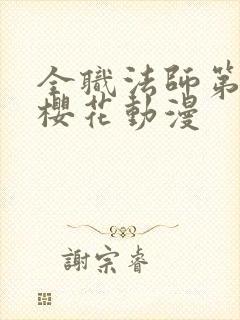 全職法師第
櫻花動漫
謝宗睿